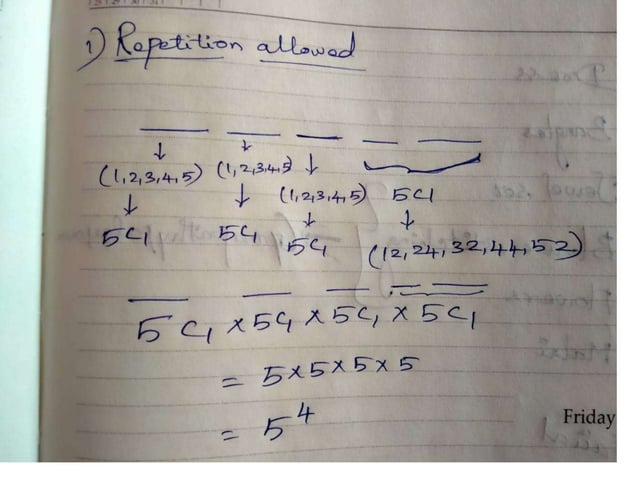 1) Repetition allowed
(1,2,3,4,5) (1,2,3,4,5)
(1,2,3,4,5) 5C1
5C1 5C1 5C1 (12,24,32,44,52)
5C1 × 5C1 × 5C1 × 5C1
= 5×5×5×5
= 5^4
Friday